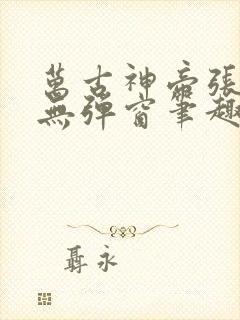 萬古神帝張
無彈窗筆趣
聶永